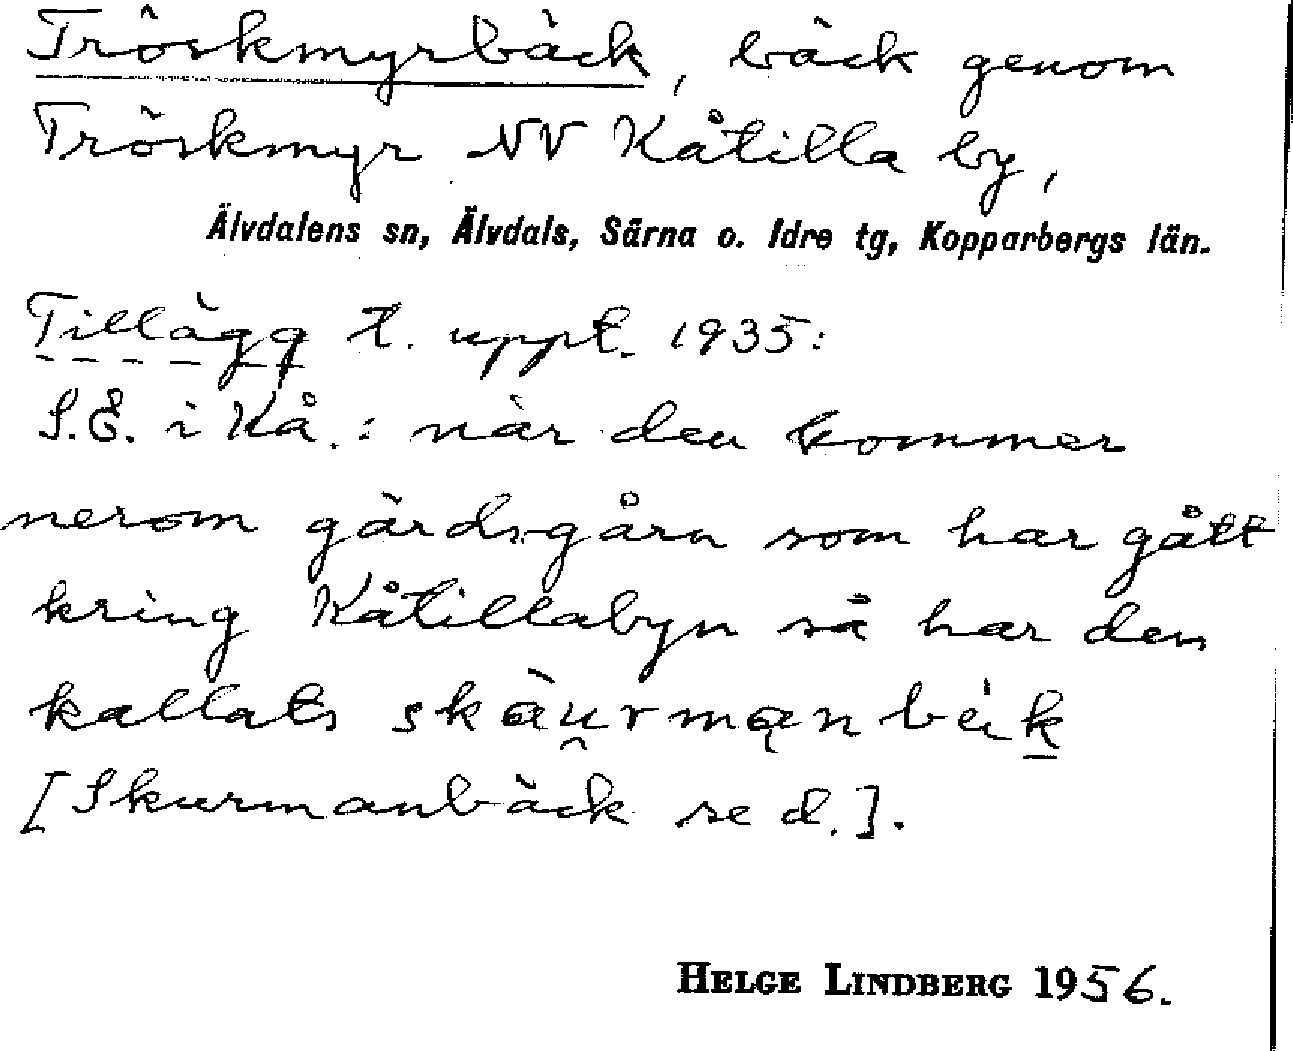 Tröskmyrbäck, bäck genom
Tröskmyr NV Kåtilla by,
Älvdalens sn, Älvdals, Särna o. Idre tg, Kopparbergs län.
Tillägg t. uppt. 1935:
S.E. i Kå.: när den kommer
nerom gärdsgårn som har gått
kring Kåtillabyn så har den
kallats skàu̯rmąnbèi̇k̲
[Skurmanbäck se d.].
HELGE LINDBERG 1956.